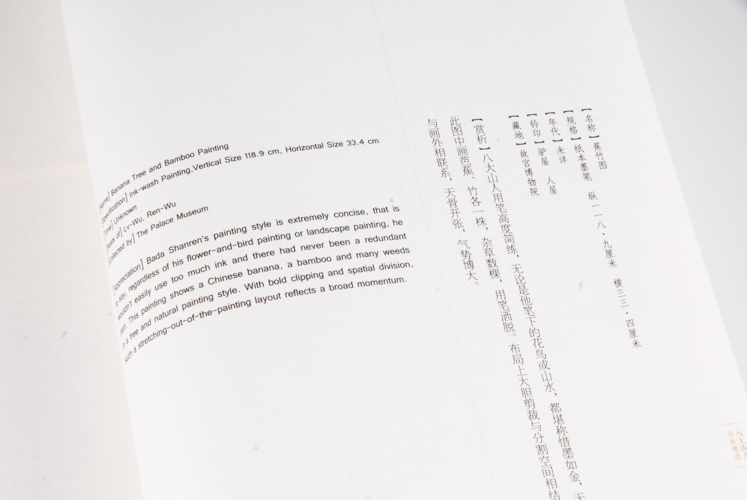 Name] Banana Tree and Bamboo Painting
Specification] Ink-wash Painting,Vertical Size 118.9 cm, Horizontal Size 33.4 cm
Time] Unknown
of] Lv-Wu, Ren-Wu
Collected by] The Palace Museum
Appreciation] Bada Shanren's painting style is extremely concise, that is
to say, regardless of his flower-and-bird painting or landscape painting, he
wouldn't easily use too much ink and there had never been a redundant
part. This painting shows a Chinese banana, a bamboo and many weeds
in a free and natural painting style. With bold clipping and spatial division,
such a stretching-out-of-the-painting layout reflects a broad momentum.
【名称】蕉竹图
【规格】纸本墨笔 纵 一一八·九厘米 横三三·四厘米
【年代】未详
【钤印】驴屋 人屋
【藏地】故宫博物院
【赏析】八大山人用笔高度简练，无论是他笔下的花鸟或山水，都堪称惜墨如金，无
此图中画芭蕉、竹各一株，杂草数棵，用笔洒脱。布局上大胆剪裁与分割空间相结
与画外相联系，天骨开张，气势博大。